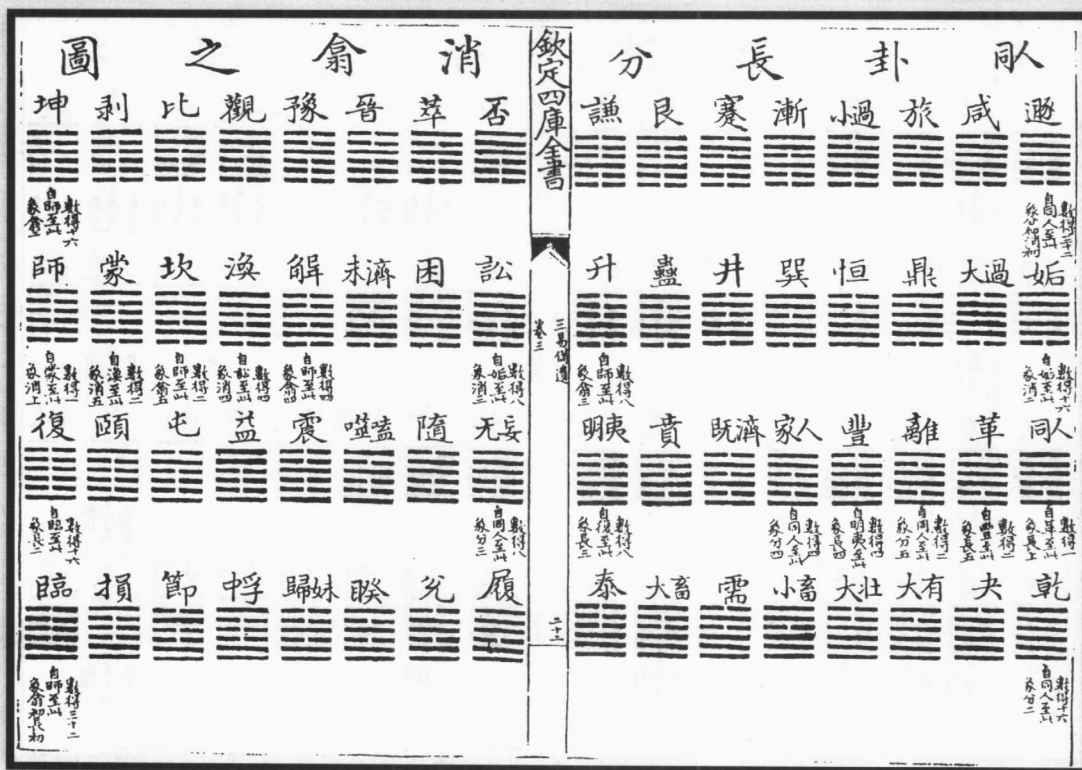 同人卦長分
遯 咸 旅 小過 漸 蹇 艮 謙
數得三十二
自同人至此
象分初消初
姤 大過 鼎 恒 巽 井 蠱 升
數得十六
自姤至此
象消二
數得八
自師至此
象翕三
同人 革 離 豐 家人 既濟 賁 明夷
數得一
自革至此
象長上
數得二
自豐至此
象長五
數得二
自同人至此
象分五
數得四
自明夷至此
象長四
數得四
自同人至此
象分四
數得八
自復至此
象長三
乾 夬 大有 大壯 小畜 需 大畜 泰
數得十六
自同人至此
象分二
欽定四庫全書
三易備遺
卷三
二十二
消翕之圖
否 萃 晉 豫 觀 比 剥 坤
數得十六
自師至此
象翕二
訟 困 未濟 解 渙 坎 蒙 師
數得八
自姤至此
象消三
數得四
自師至此
象翕四
數得四
自訟至此
象消四
數得二
自師至此
象翕五
數得二
自渙至此
象消五
數得一
自蒙至此
象消上
无妄 隨 噬嗑 震 益 屯 頤 復
數得八
自同人至此
象分三
數得十六
自臨至此
象長二
履 兌 睽 歸妹 中孚 節 損 臨
數得三十二
自師至此
象翕初長初